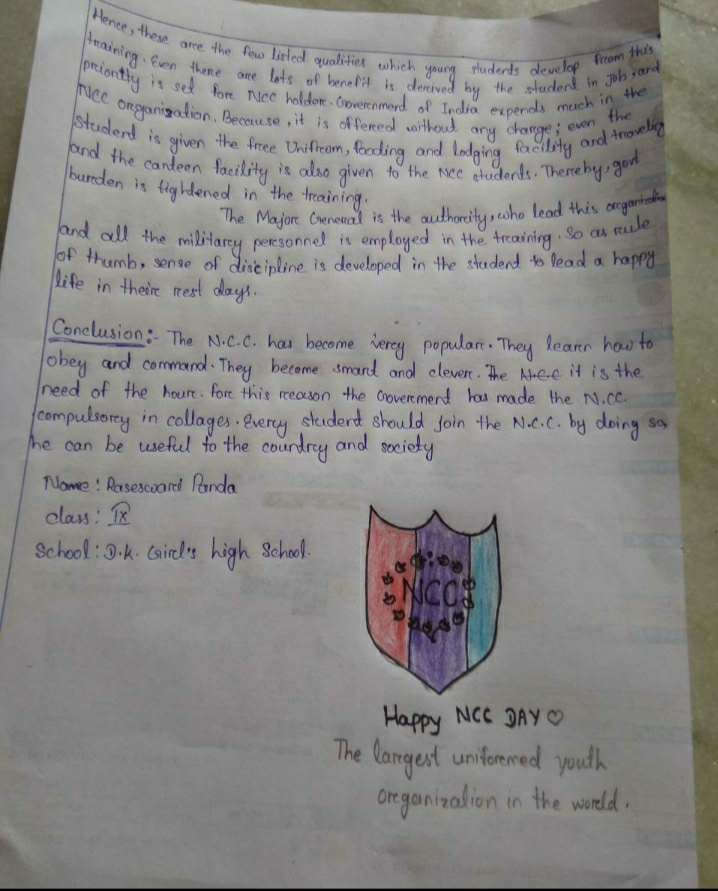 Hence, these are the few listed qualities which young students develop from this
training. Even there are lots of benefit is derived by the student in Job, and
priority is set for NCC holder. Government of India expends much in the
NCC organization. Because, it is offered without any charge; even the
student is given the free Unifrom, fooding and lodging facility and traveling
and the canteen facility is also given to the NCC students. Thereby, govt
burden is tightened in the training.
The Major General is the authority, who lead this organization
and all the military personnel is employed in the training. So as rule
of thumb, sense of discipline is developed in the student to lead a happy
life in their rest days.
Conclusion:- The N.C.C. has become very popular. They learn how to
obey and command. They become smard and clever. The NCC it is the
need of the hour. for this reason the Goverment has made the N.CC.
compulsory in collages. Every student should join the N.C.C. by doing so,
he can be useful to the country and society
Name: Raseswari Panda
class: IX
School: D.K. Girl's high School.
NCC
Happy NCC DAY ♡
The largest uniformed youth
organization in the world.